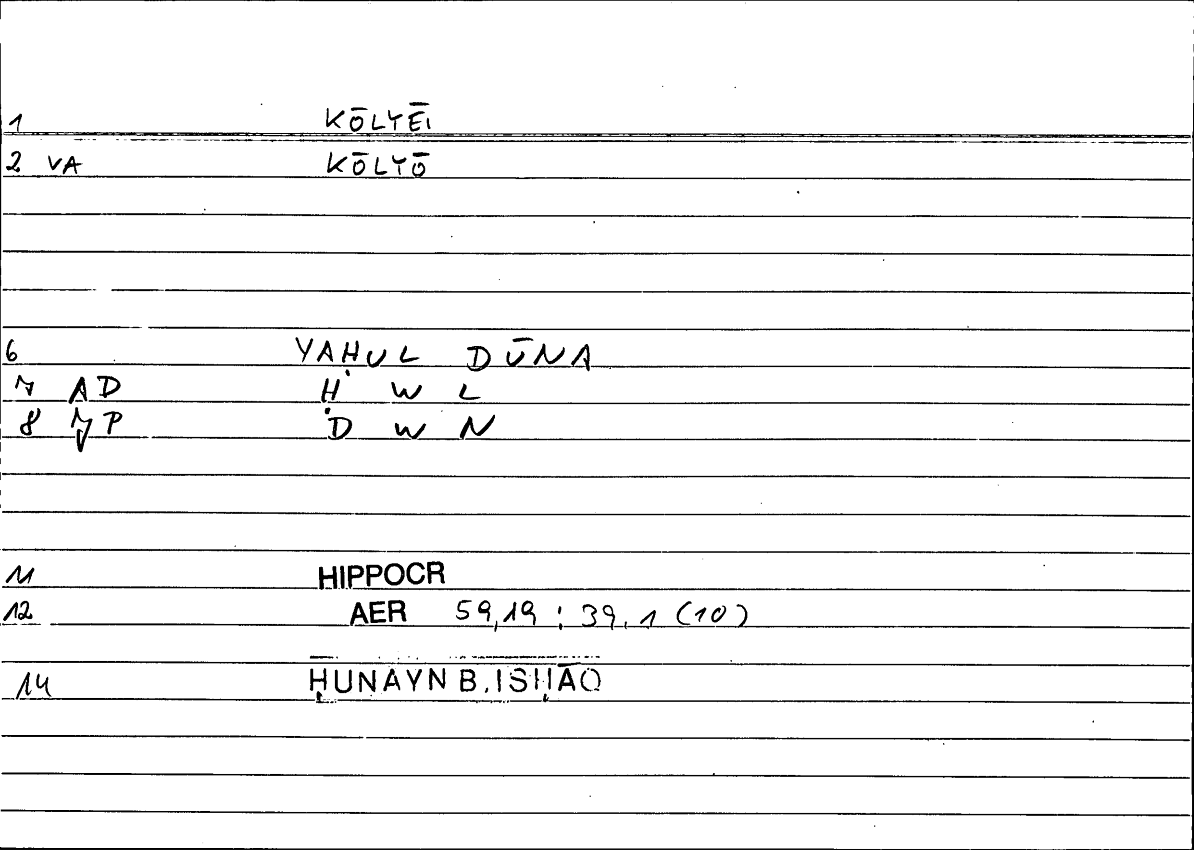 1 KŌLYĒI
2 VA KŌLYŌ
6 YAḤUL DŪNA
7 AD Ḥ W L
8 JP D W N
11 HIPPOCR
12 AER 59,19 ; 39,1 (10)
14 ḤUNAYN B. ISḤĀQ